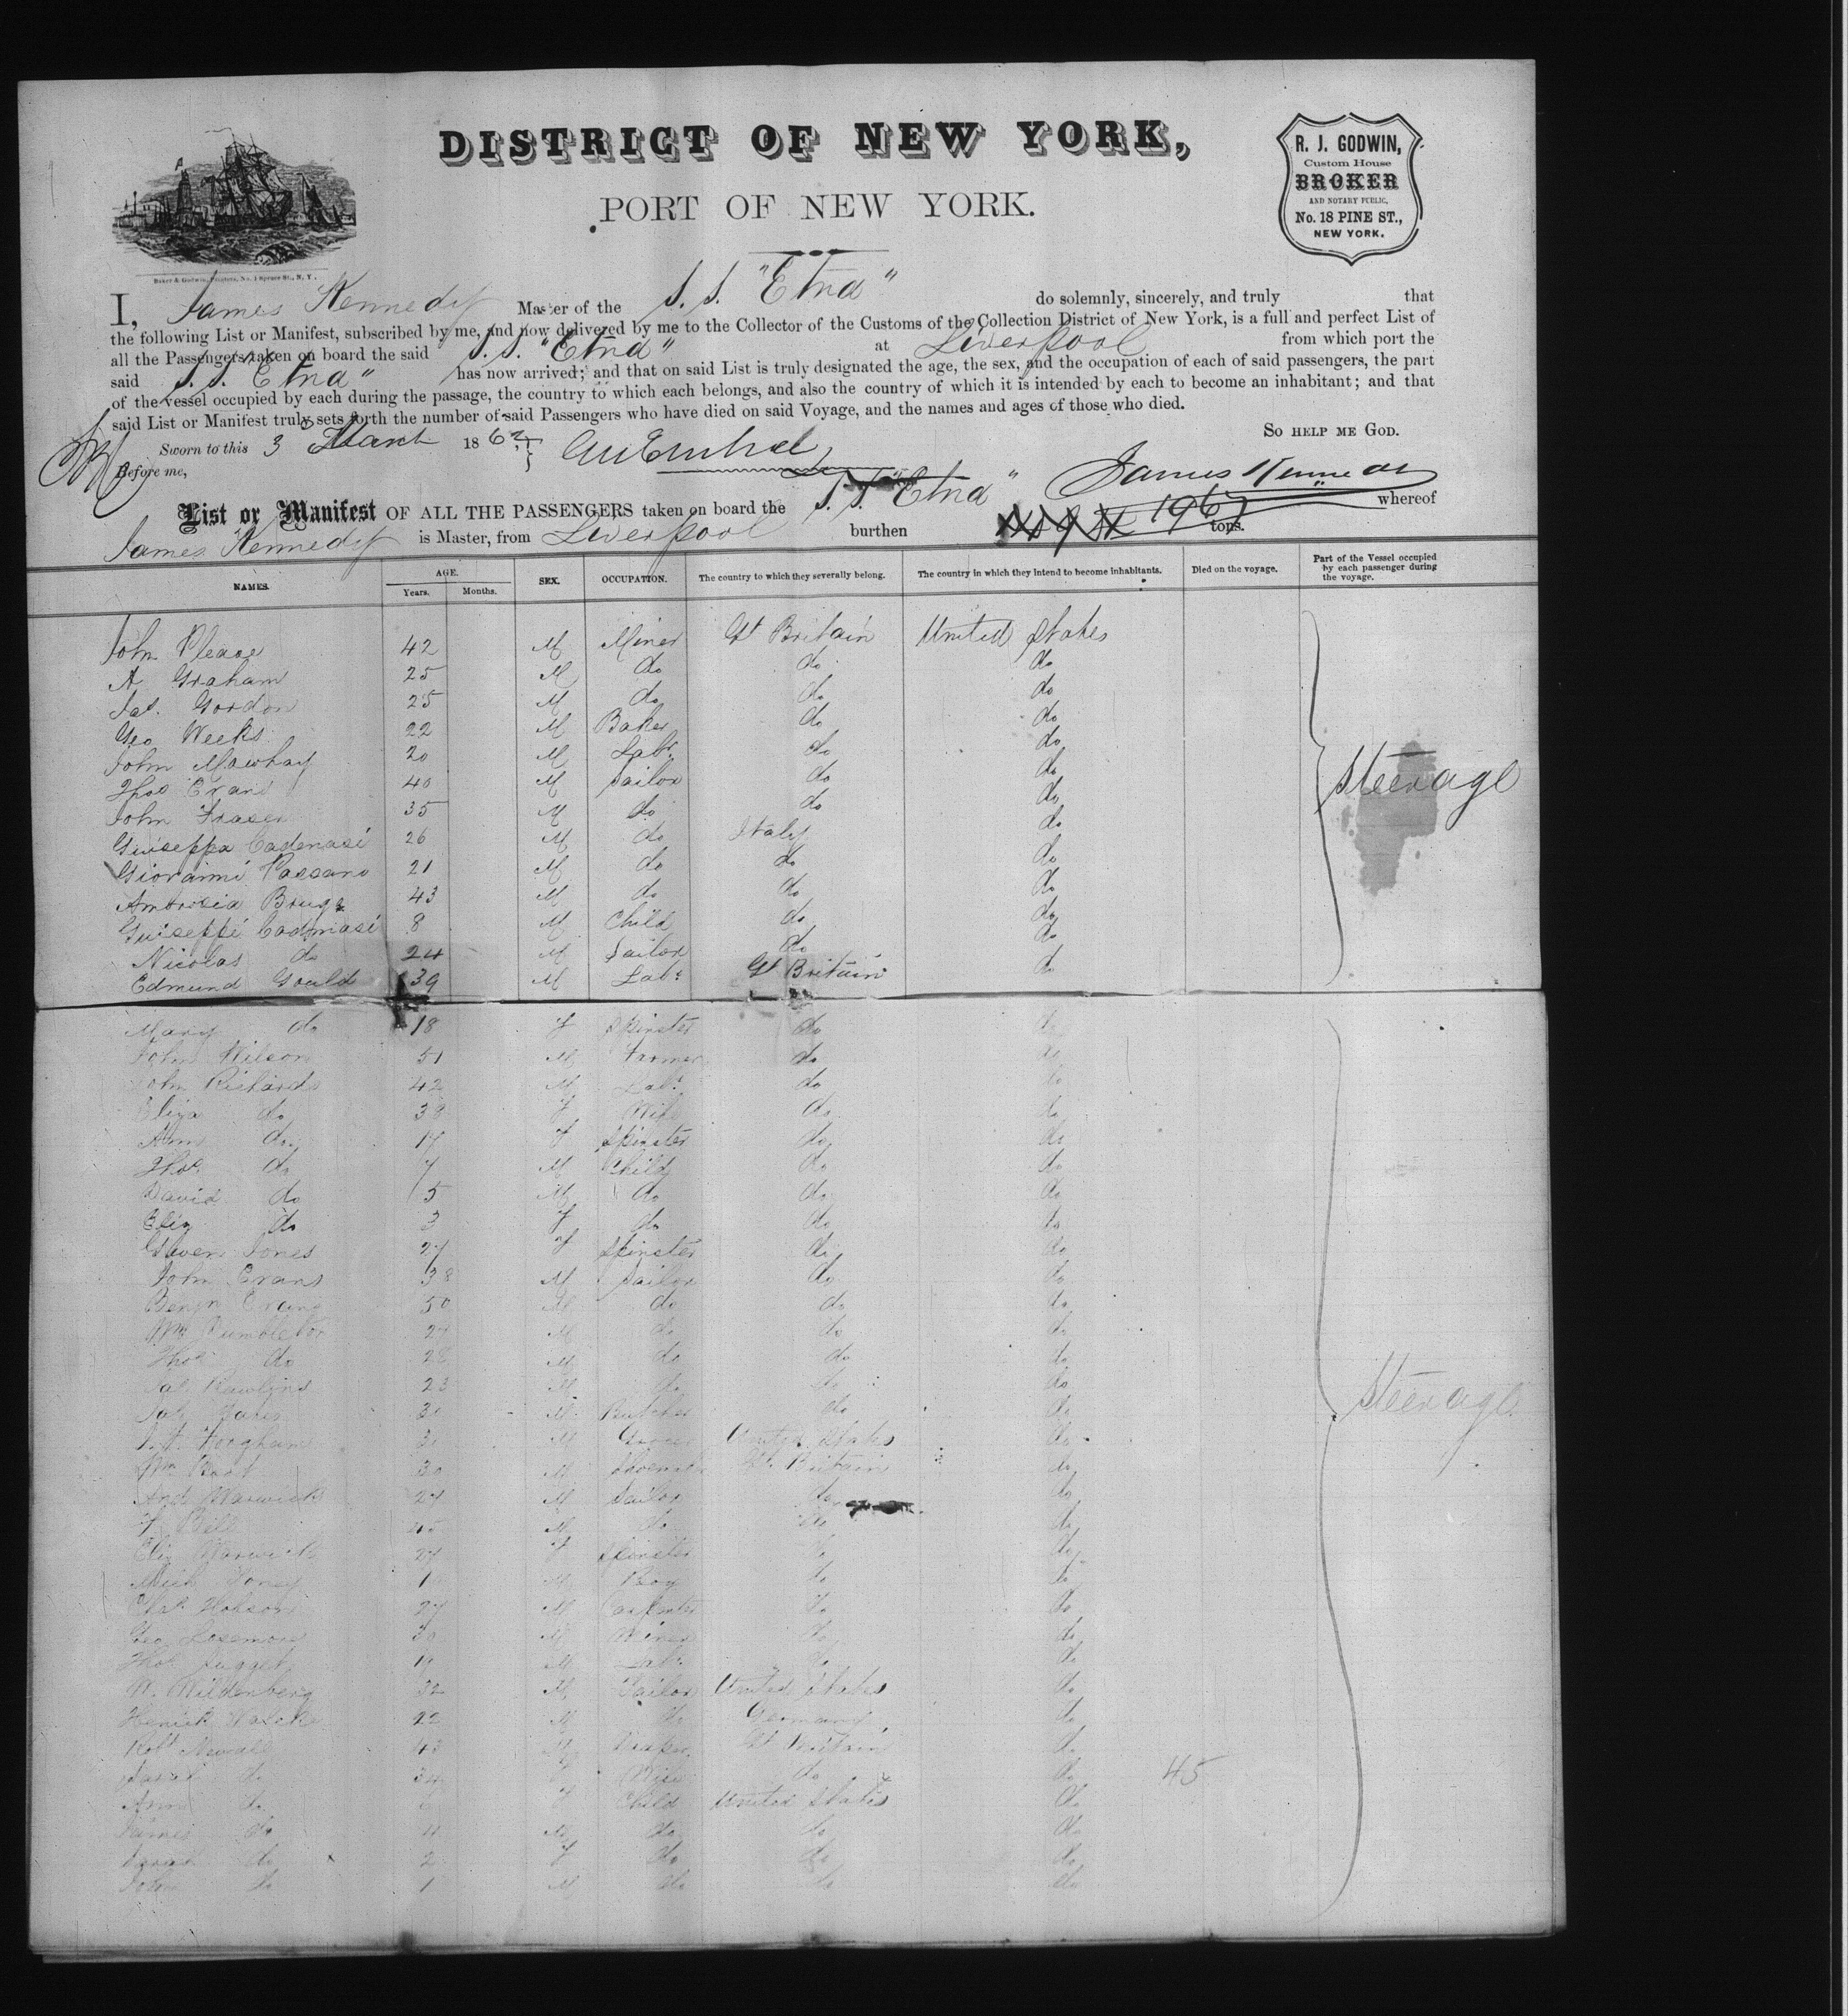 DISTRICT OF NEW YORK,
PORT OF NEW YORK.
R. J. GODWIN,
Custom House
BROKER
AND NOTARY PUBLIC,
No. 18 PINE ST.,
NEW YORK.
Baker & Godwin, Printers, No. 1 Spruce St., N. Y.
I, James Kennedy Master of the S. S. "Etna" do solemnly, sincerely, and truly that
the following List or Manifest, subscribed by me, and now delivered by me to the Collector of the Customs of the Collection District of New York, is a full and perfect List of
all the Passengers taken on board the said S. S. "Etna" at Liverpool from which port the
said S. S. Etna" has now arrived; and that on said List is truly designated the age, the sex, and the occupation of each of said passengers, the part
of the vessel occupied by each during the passage, the country to which each belongs, and also the country of which it is intended by each to become an inhabitant; and that
said List or Manifest truly sets forth the number of said Passengers who have died on said Voyage, and the names and ages of those who died.
SO HELP ME GOD.
Sworn to this 3 March 1862
Before me,
James Kennedy
List or Manifest OF ALL THE PASSENGERS taken on board the S. S. "Etna" whereof
James Kennedy is Master, from Liverpool burthen tons.
NAMES. AGE. SEX. OCCUPATION. The country to which they severally belong. The country in which they intend to become inhabitants. Died on the voyage. Part of the Vessel occupied by each passenger during the voyage.
Years. Months.
John Please 42 M Miner Gt Britain United States
A Graham 25 M do do do
Jas. Gordon 25 M do do do
Geo Weeks 22 M Baker do do
John Mawhay 20 M Labr do do
Thos Evans 40 M Sailor do do
John Fraser 35 M do do do
Guiseppa Cadenasi 26 M do Italy do
Giovanni Passano 21 M do do do
Ambrosia 43 M do do do
Guiseppi 8 M Child do do
Nicolas do 24 M Sailor do do
Edmund Gould 39 M Labr Gt Britain do
Steerage
Mary do 18 F Spinster do do
John Wilson 51 M Farmer do do
John Richards 42 M Labr do do
Eliza do 38 F Wife do do
Ann do 17 F Spinster do do
Thos do 7 M Child do do
David do 5 M do do do
Eliz do 3 F do do do
Gwen Jones 27 F Spinster do do
John Evans 38 M Sailor do do
Benjn Evans 50 M do do do
Wm 27 M do do do
Thos do 28 M do do do
Jas Rawlins 23 M do do do
M Butcher do do
Steerage
M Grocer United States do
Wm 30 M Gt. Britain do
And Warwick 27 M Sailor do do
F Bell 45 M do do do
Eliz Warwick 27 F Spinster do do
Mich M Boy do do
Chas Hobson 27 M Carpenter do do
Geo 30 M Miner do do
Thos M Labr do do
W. Wildenberg 32 M United States do
22 M do Germany do
Robt 43 M Draper Gt Britain do
Sarah do 34 F Wife do do 45
Ann do F Child United States do
James do 4 M do do do
Sarah do 2 F do do do
John do 1 M do do do